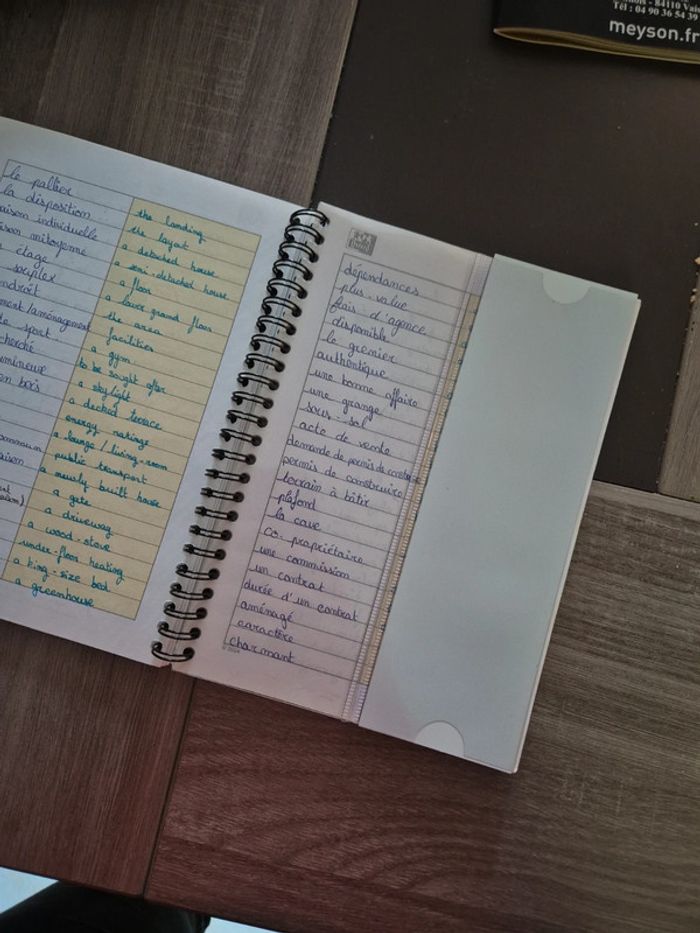 - 84110 Vai
Tél : 04 90 36 54 39
meyson.fr
le pallier
la disposition
individuelle
mitoyenne
étage
souplex
endroit
/aménagement
sport
cherché
lumineuse
en bois
maison
the landing
the layout
a detached house
a semi-detached house
a floor
a lower ground floor
the area
facilities
a gym
to be sought after
a skylight
a decked terrace
energy ratings
a lounge / living-room
public transport
a newly built house
a gate
a driveway
a wood-stove
under-floor heating
a king-size bed
a greenhouse
dépendances
plus-value
frais d'agence
disponible
le grenier
authentique
une bonne affaire
une grange
sous-sol
acte de vente
demande de permis de
permis de construire
terrain à bâtir
plafond
la cave
co-propriétaire
une commission
un contrat
durée d'un contrat
aménagé
caractère
charmant